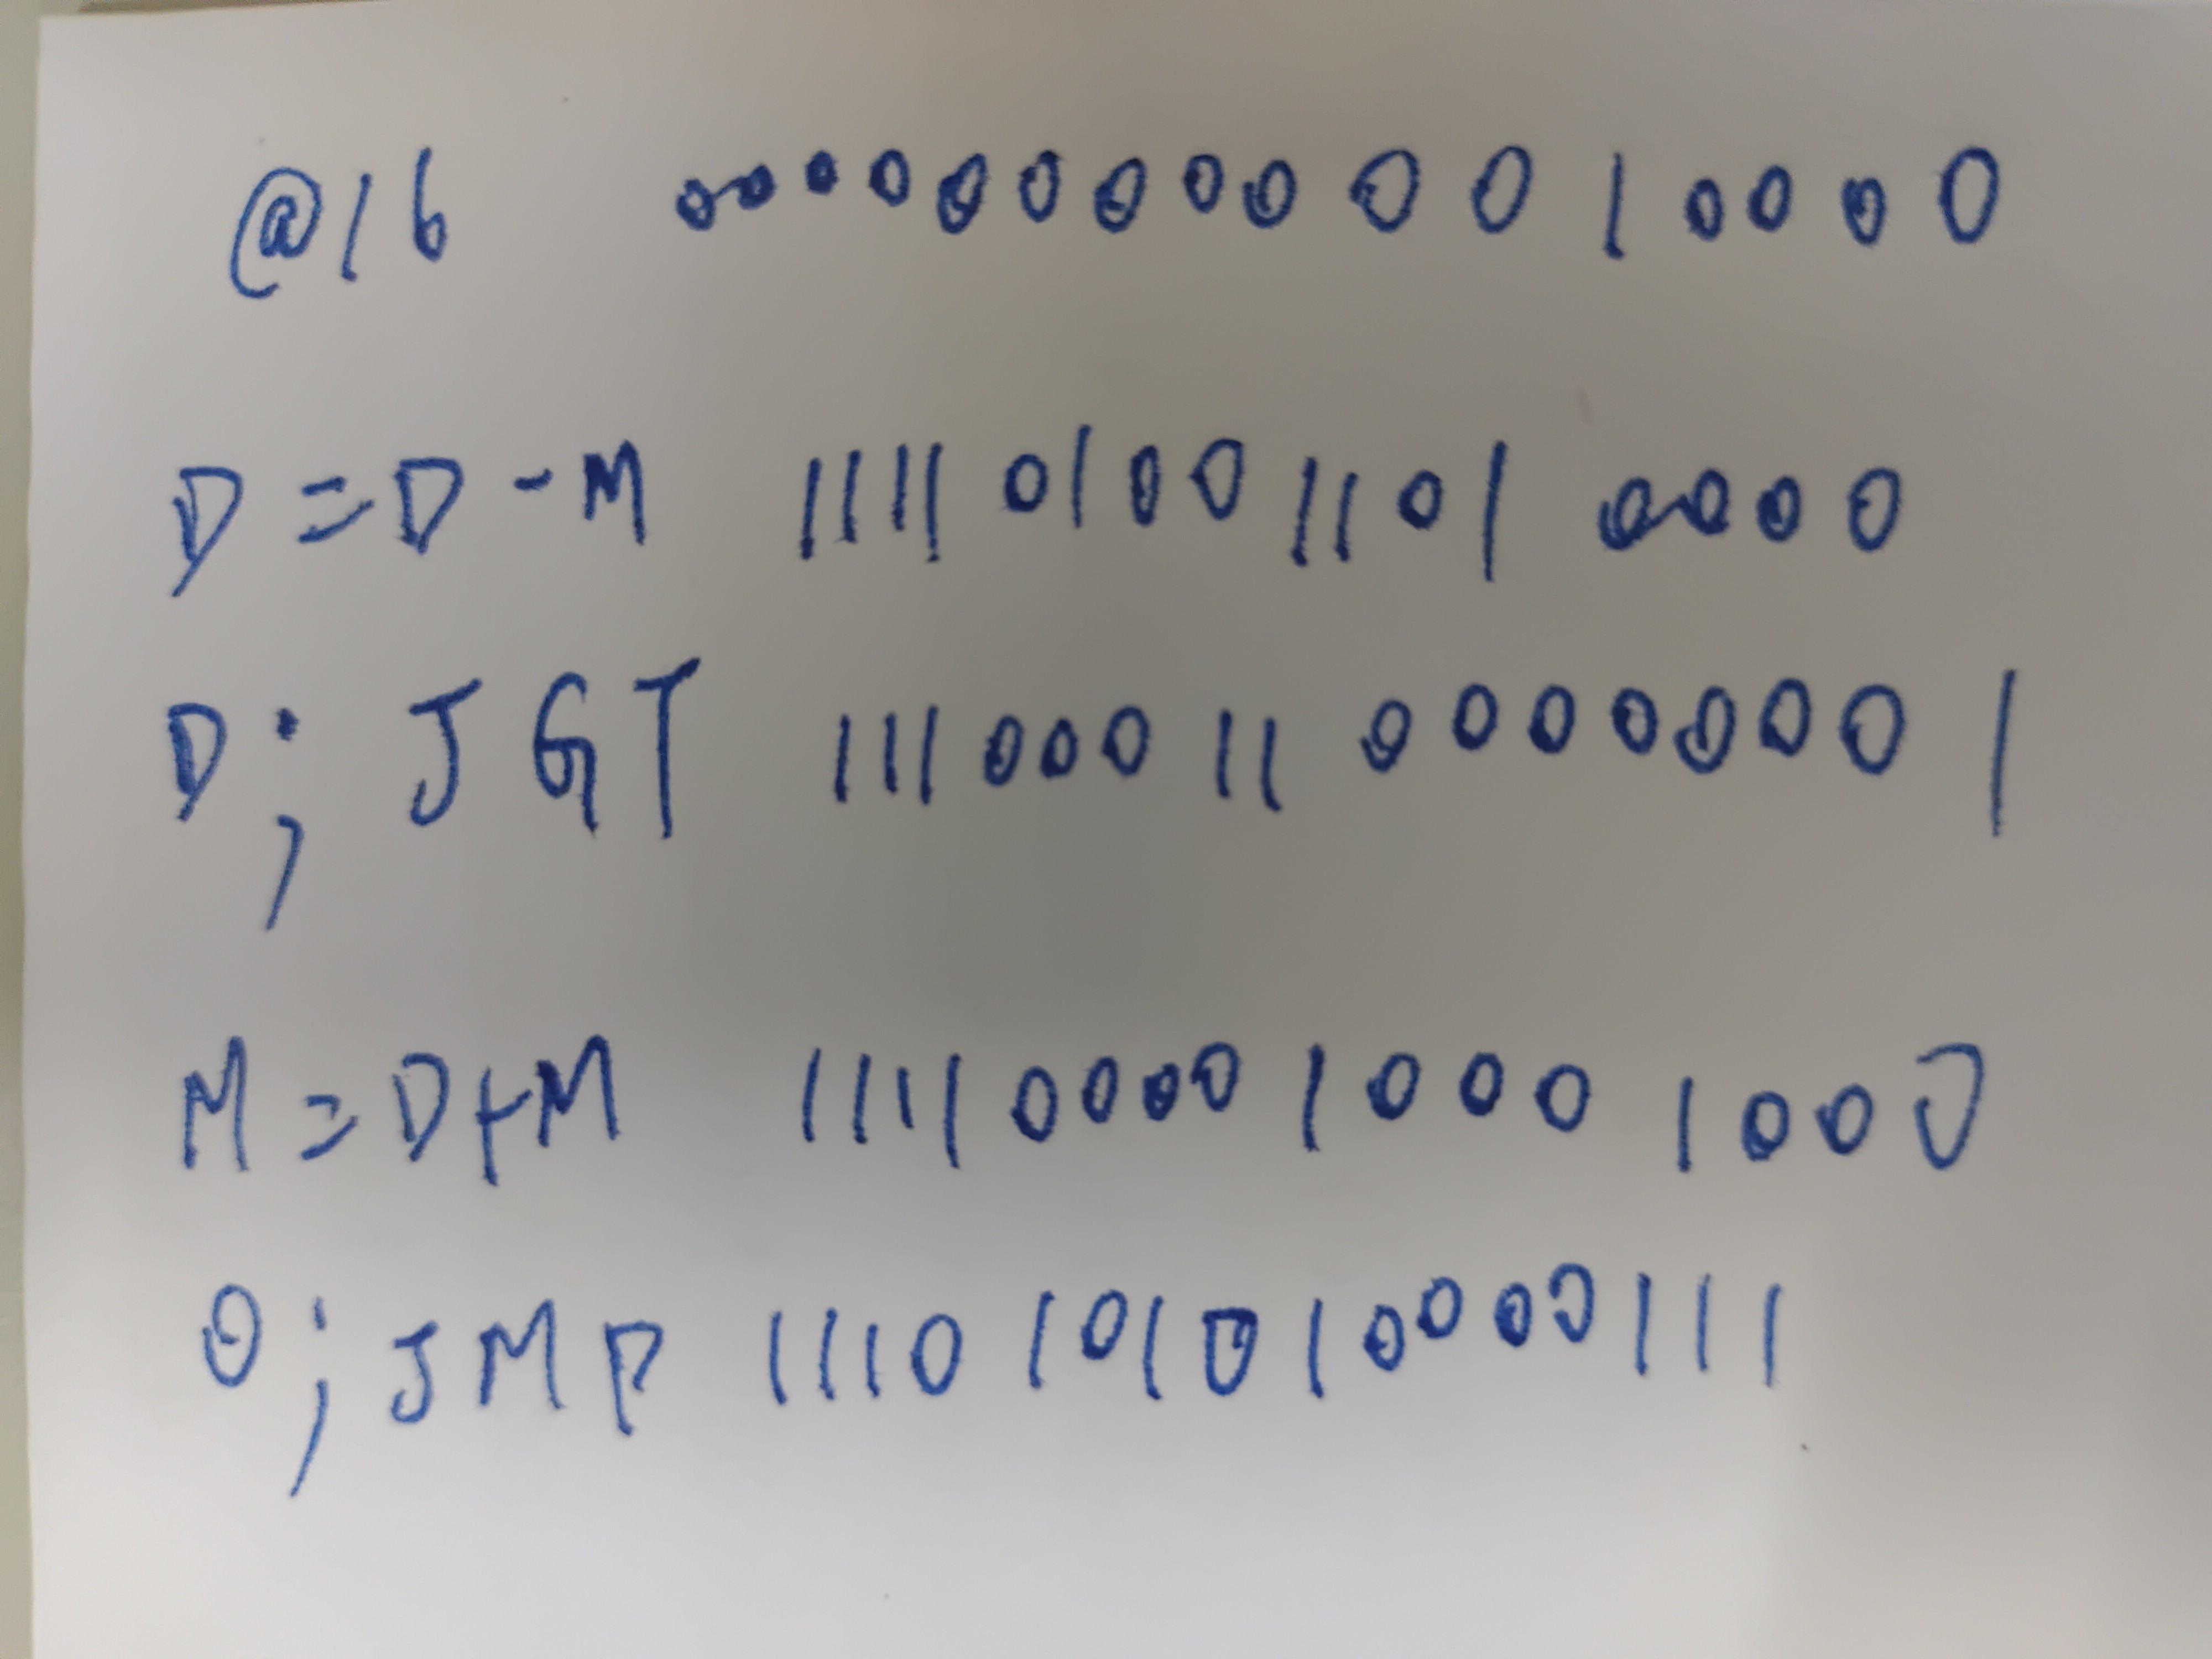 @16 0000000000010000
D=D-M 1111010011010000
D; JGT 1110001100000001
M=D+M 1111000010001000
0; JMP 1110101010000111